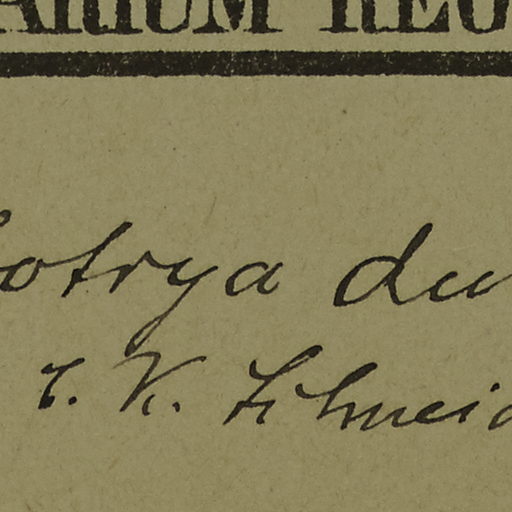 ARIUM REG
otrya du
C. K. Schneid